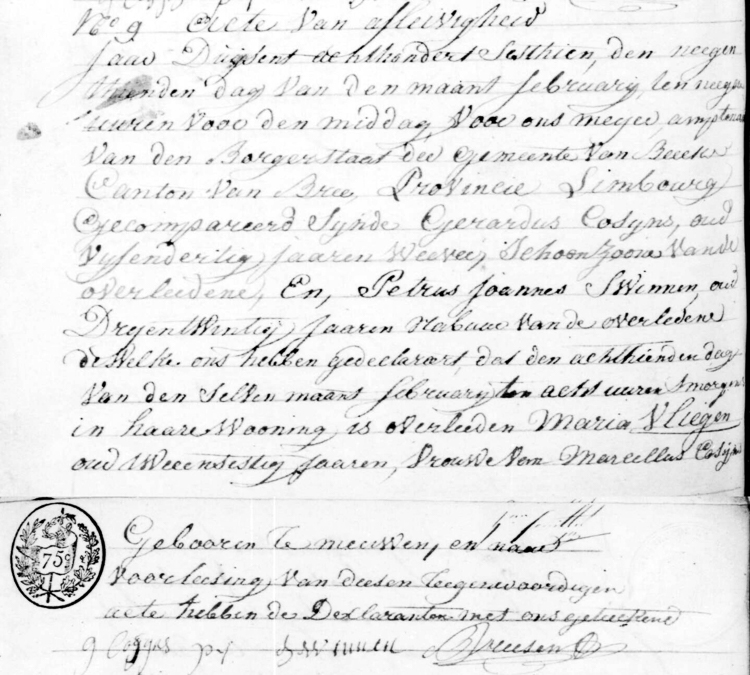 No 9 Acte Van afleivigheid
Jaar Duysent achthondert Sesthien, den neegen
thienden dag van den maant february, ten neegen
uuren Voor den middag, Voor ons meyer
Van den Borgerstaat der Gemeente Van Beeck
Canton Van Bree, Provincie Limbourg
Gecompareerd Synde Gerardus Cosyns, oud
Vyfendertig Jaaren Weever, Schoonzoone Van de
overleidene, En, Petrus Joannes Swinnen, oud
Dryentwintig Jaaren Nabuur Van de overledene
dewelke ons hebben gedeclareert, dat den achthienden dag
Van den Selven maant february ten acht uuren Smorgens
in haare Wooning is overleiden Maria Vliegen
oud Weeensestig Jaaren, Vrouwe Van Marcellus Cosyns
75c
Gebooren te meuwen, en naar
Voorleesing, Van deesen teegenwoordigen
acte hebben de Declaranten met ons geteekend
g Cosyns p j Swinnen Dreesen